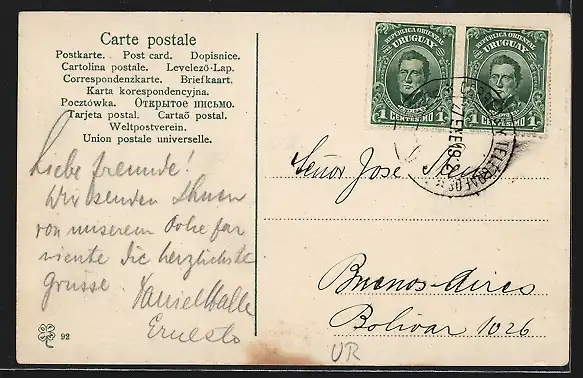 Carte postale
Postkarte. Post card. Dopisnice.
Cartolina postale. Levelező-Lap.
Correspondenzkarte. Briefkaart.
Karta korespondencyjna.
Pocztówka. Открытое письмо.
Tarjeta postal. Cartaõ postal.
Weltpostverein.
Union postale universelle.
Liebe freunde!
Wir senden Ihnen
von unserem
die herzlichste
Grüsse
Ernesto
92
REPUBLICA ORIENTAL
URUGUAY
1 CENTESIMO 1
REPUBLICA ORIENTAL
URUGUAY
1 CENTESIMO 1
TELEGRAFOS
27 ENE 19
Señor Jose
Buenos-Aires
Bolivar 1026
UR